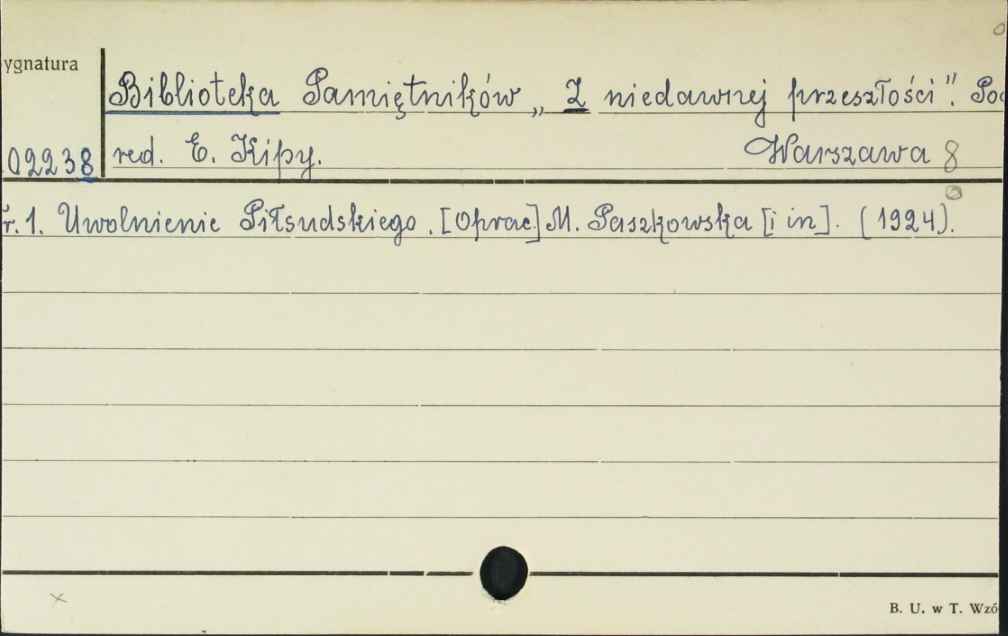 ygnatura
Biblioteka Pamiętników „Z niedawnej przeszłości". Pod
02238 red. E. Kipy. Warszawa 8
Nr. 1. Uwolnienie Piłsudskiego. [Oprac] M. Paszkowska [i in]. (1924).
B. U. w T. Wzó